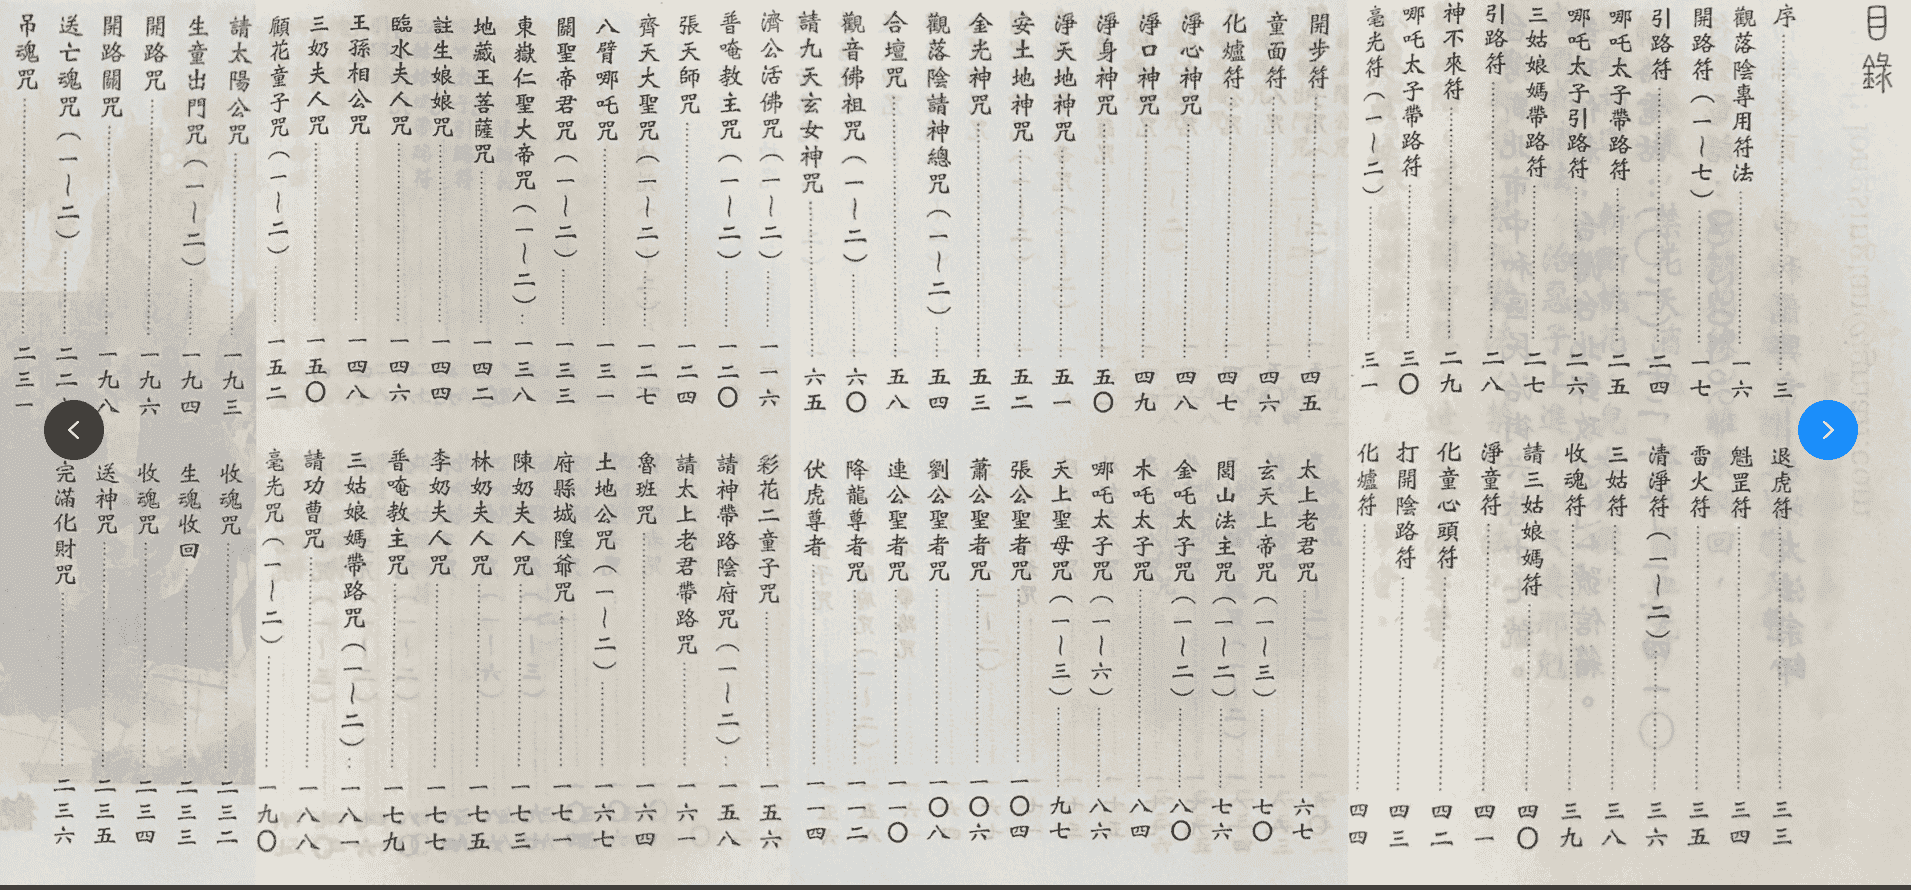 目錄
序 三
觀落陰專用符法 一六
開路符（一～七） 一七
引路符 二四
哪吒太子帶路符 二五
哪吒太子引路符 二六
三姑娘媽帶路符 二七
引路符 二八
神不來符 二九
哪吒太子帶路符 三〇
毫光符（一～二） 三一
退虎符 三三
魁罡符 三四
雷火符 三五
清淨符（一～二） 三六
三姑符 三八
收魂符 三九
請三姑娘媽符 四〇
淨童符 四一
化童心頭符 四二
打開陰路符 四三
化爐符 四四
開步符 四五
童面符 四六
化爐符 四七
淨心神咒 四八
淨口神咒 四九
淨身神咒 五〇
淨天地神咒 五一
安土地神咒 五二
金光神咒 五三
觀落陰請神總咒（一～二） 五四
合壇咒 五八
觀音佛祖咒（一～二） 六〇
請九天玄女神咒 六五
太上老君咒 六七
玄天上帝咒（一～三） 七〇
閭山法主咒（一～二） 七六
金吒太子咒（一～二） 八〇
木吒太子咒 八四
哪吒太子咒（一～六） 八六
天上聖母咒（一～三） 九七
張公聖者咒 一〇四
蕭公聖者咒 一〇六
劉公聖者咒 一〇八
連公聖者咒 一一〇
降龍尊者咒 一一二
伏虎尊者 一一四
濟公活佛咒（一～二） 一一六
普唵教主咒（一～二） 一二〇
張天師咒 一二四
齊天大聖咒（一～二） 一二七
八臂哪吒咒 一三一
關聖帝君咒（一～二） 一三三
東嶽仁聖大帝咒（一～二） 一三八
地藏王菩薩咒 一四二
註生娘娘咒 一四四
臨水夫人咒 一四六
王孫相公咒 一四八
三奶夫人咒 一五〇
顧花童子咒（一～二） 一五二
彩花二童子咒 一五六
請神帶路陰府咒（一～二） 一五八
請太上老君帶路咒 一六一
魯班咒 一六四
土地公咒（一～二） 一六七
府縣城隍爺咒 一七一
陳奶夫人咒 一七三
林奶夫人咒 一七五
李奶夫人咒 一七七
普唵教主咒 一七九
三姑娘媽帶路咒（一～二） 一八一
請功曹咒 一八八
毫光咒（一～二） 一九〇
請太陽公咒 一九三
生童出門咒（一～二） 一九四
開路咒 一九六
開路關咒 一九八
送亡魂咒（一～二） 二二
吊魂咒 二三一
收魂咒 二三二
生魂收回 二三三
收魂咒 二三四
送神咒 二三五
完滿化財咒 二三六